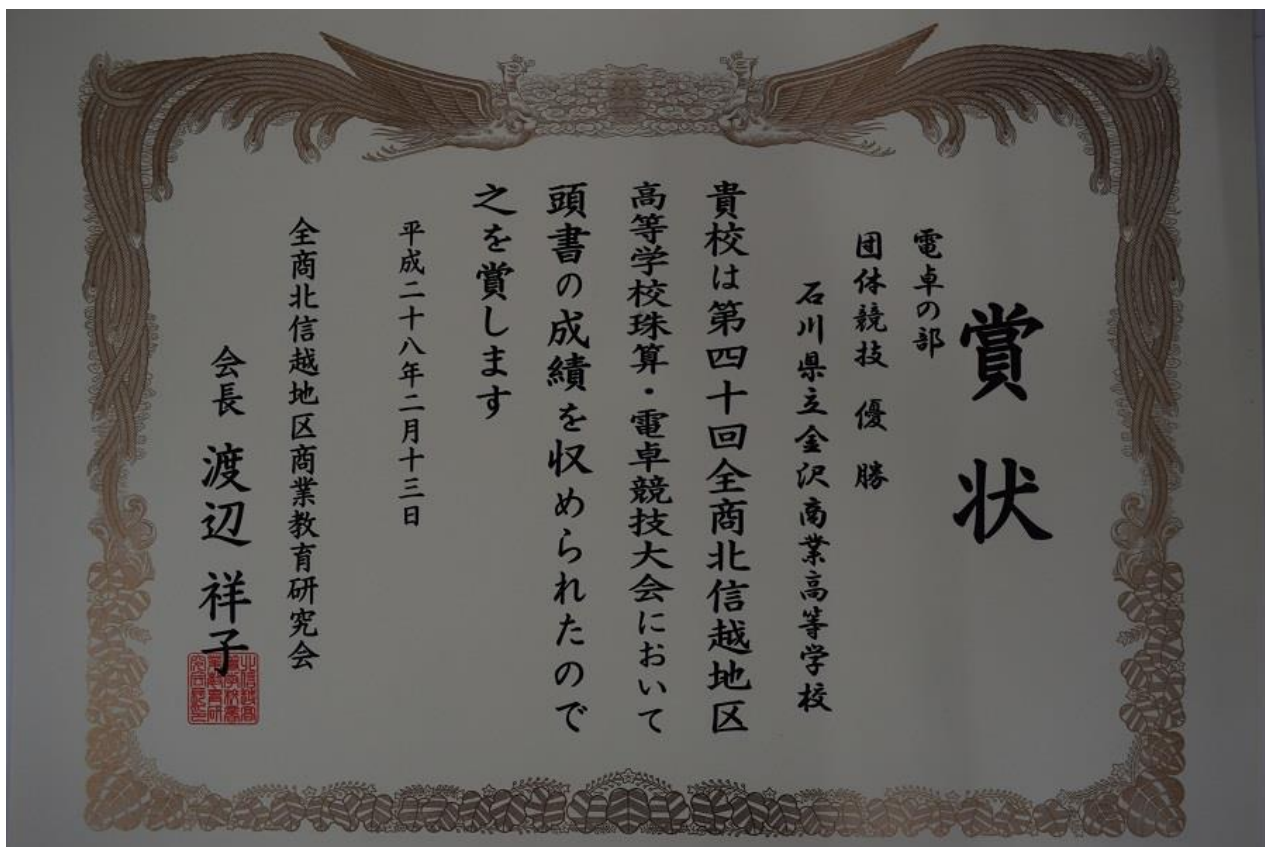 賞状
電卓の部
団体競技 優勝
石川県立金沢商業高等学校
貴校は第四十回全商北信越地区
高等学校珠算・電卓競技大会において
頭書の成績を収められたので
之を賞します
平成二十八年二月十三日
全商北信越地区商業教育研究会
会長 渡辺祥子